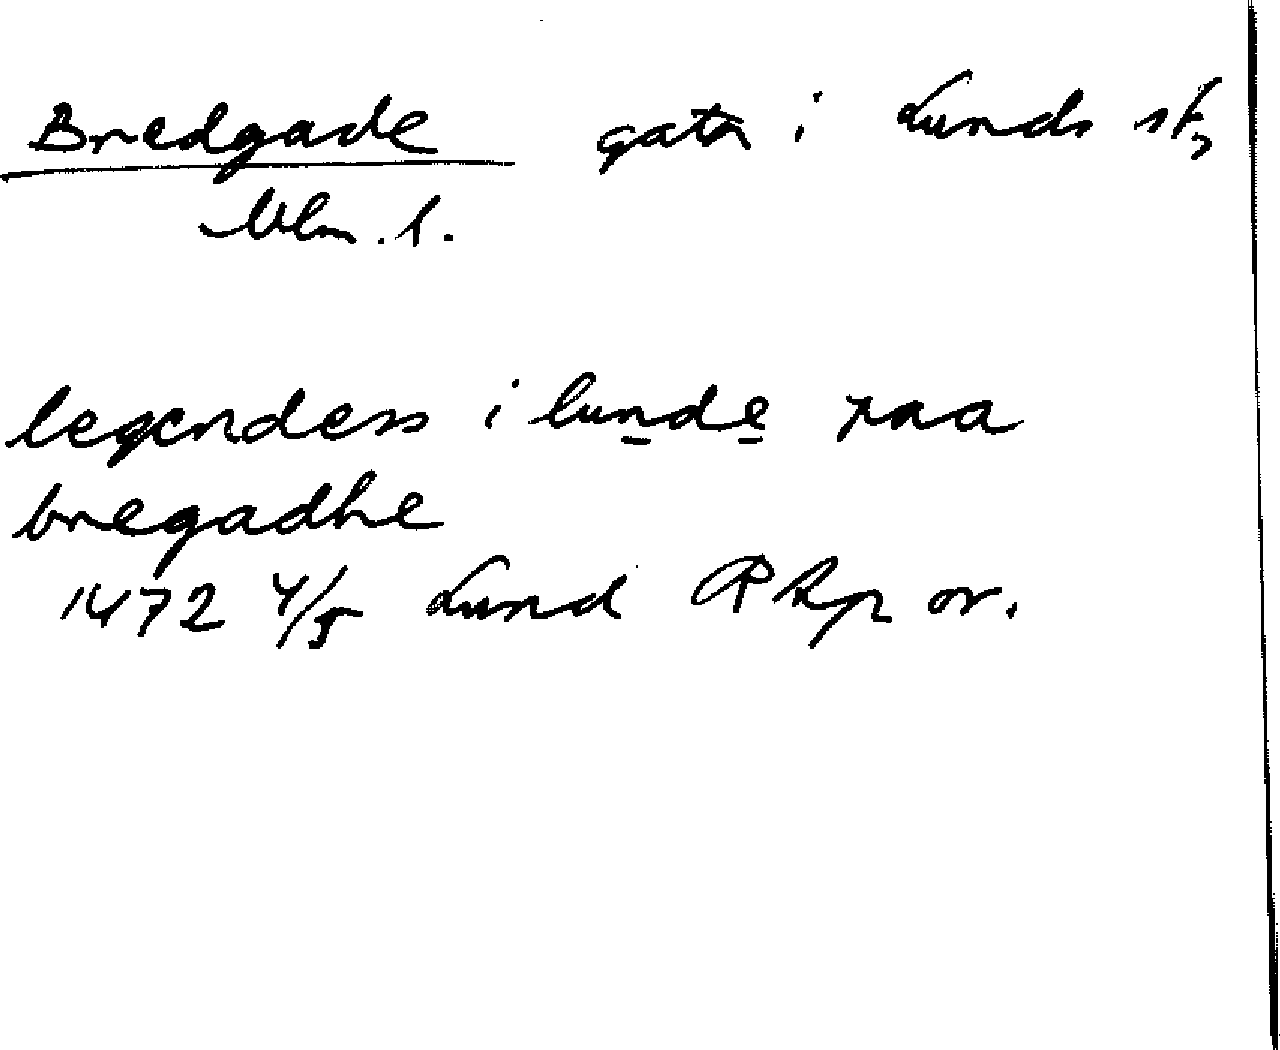 Bredgade gata i Lunds st,
Mlm. l.
legendess i lunde paa
bregadhe
1472 4/5 Lund RA pp or.